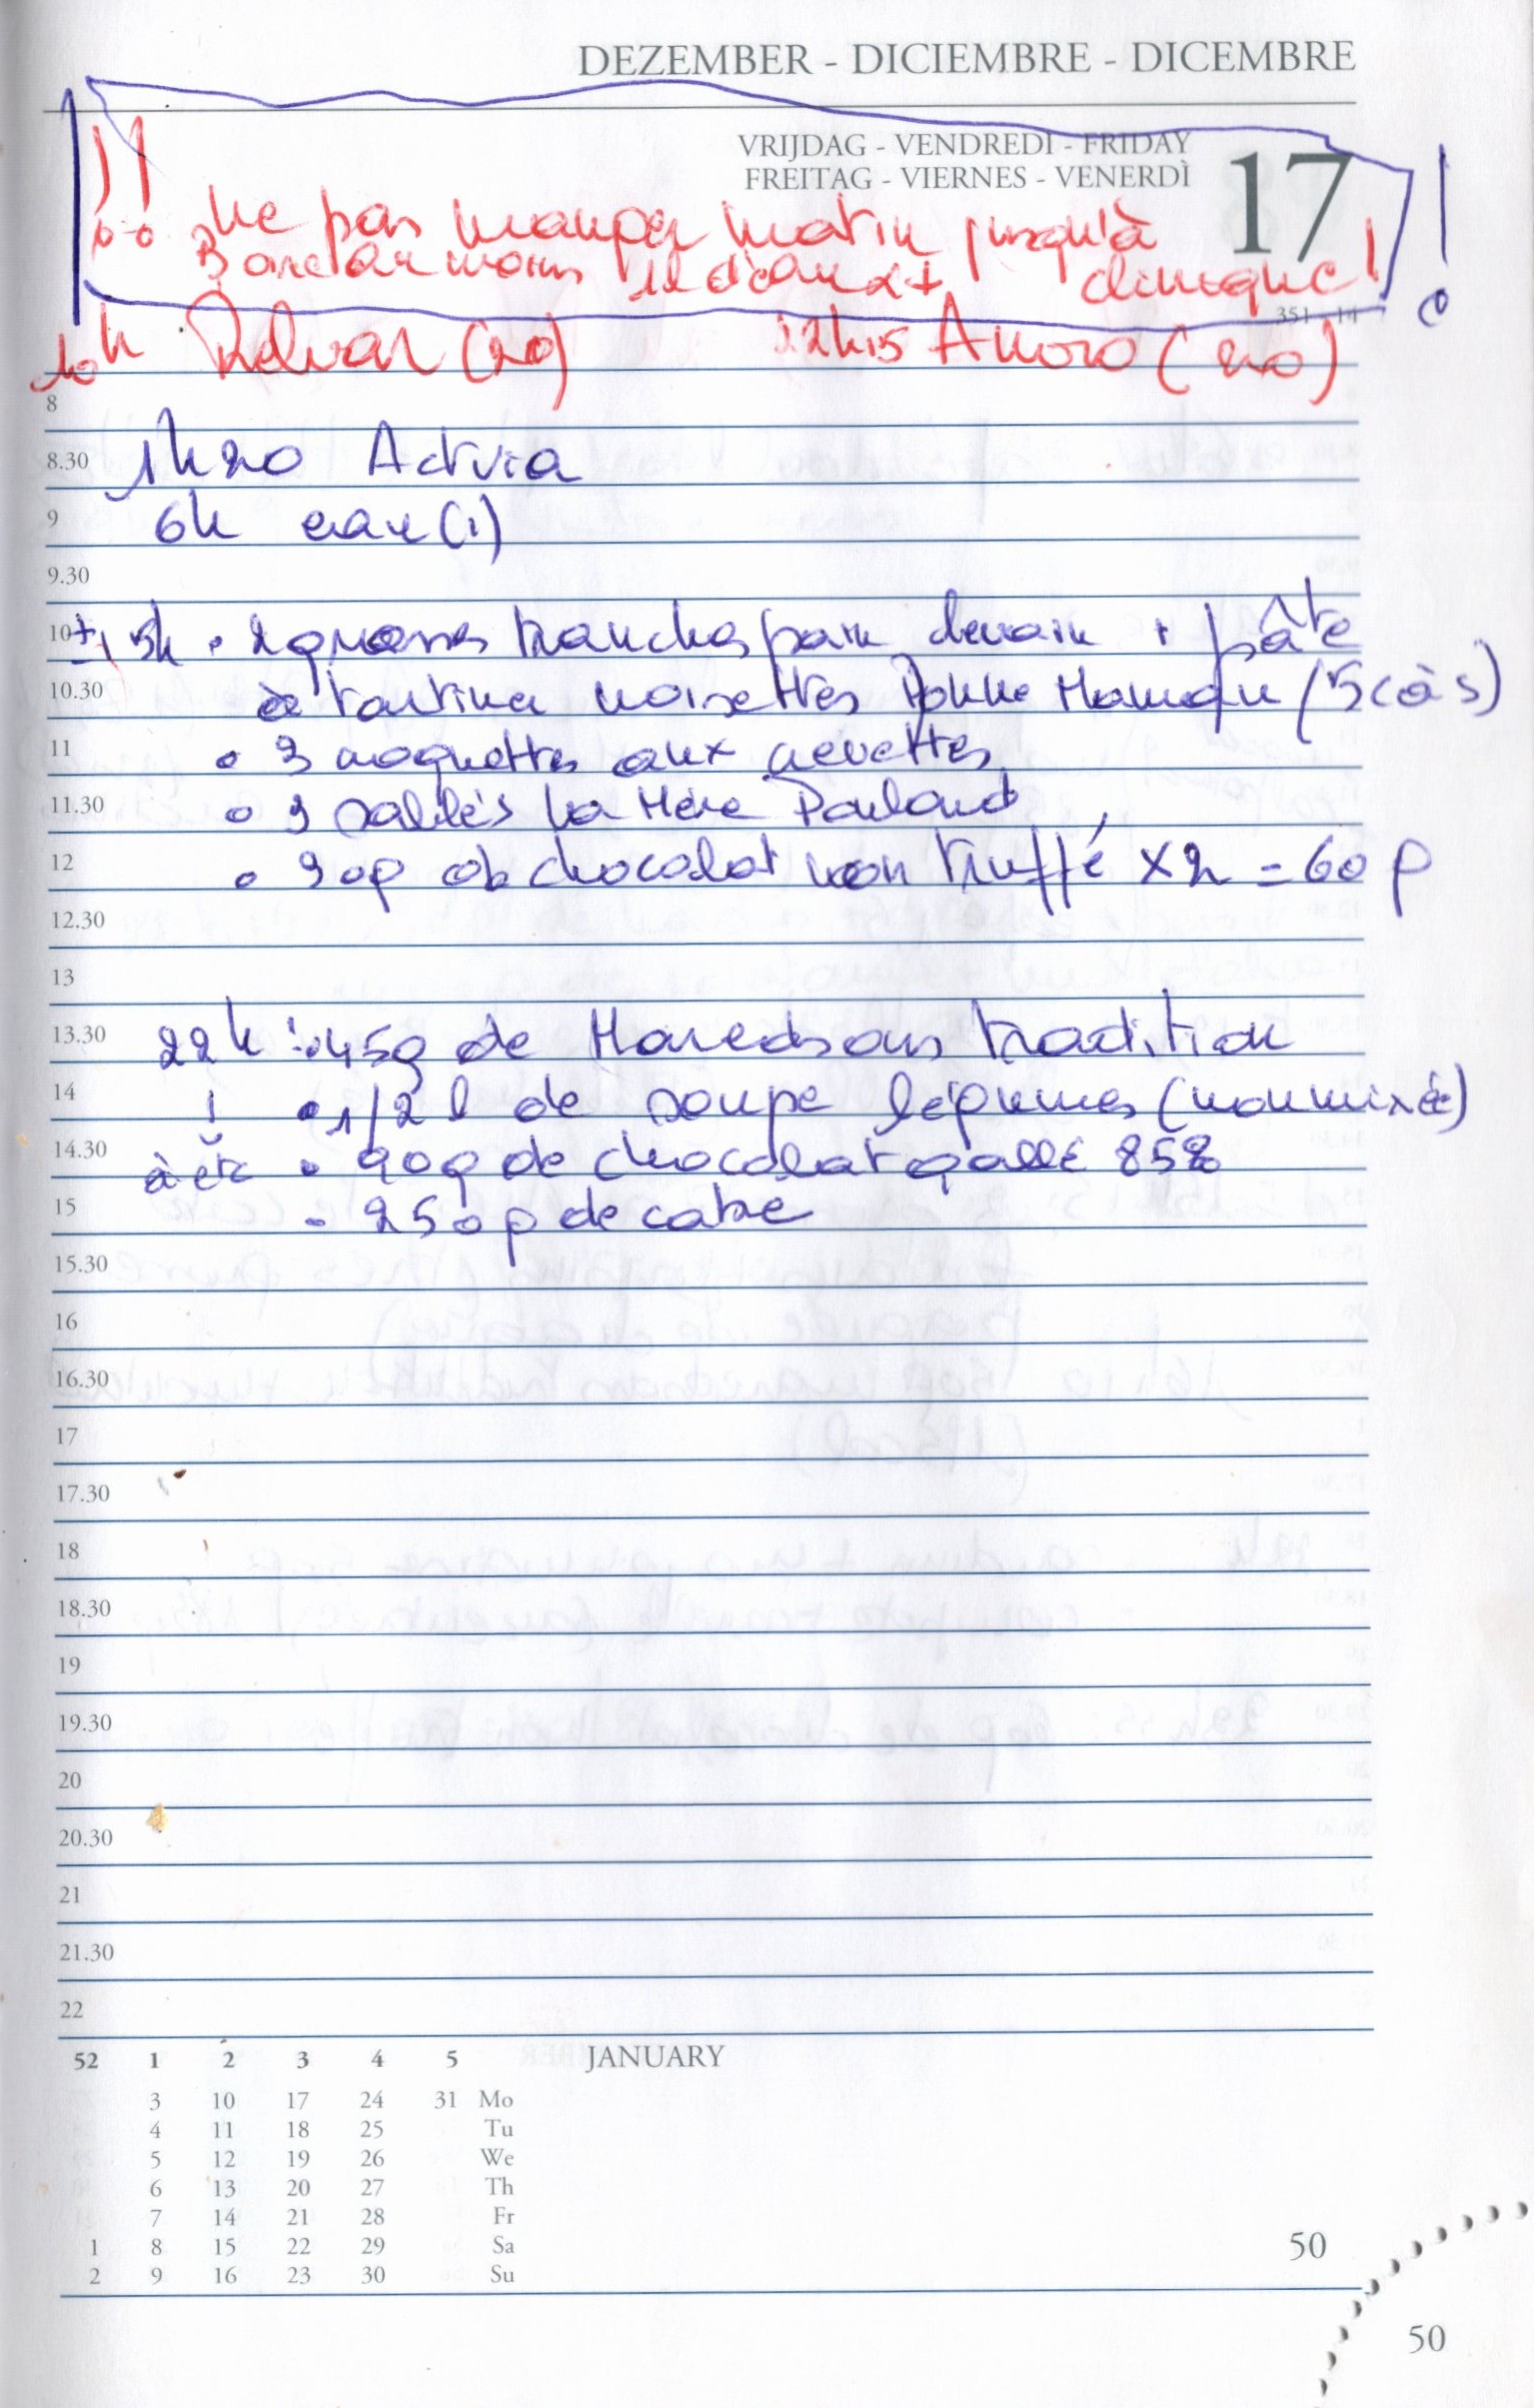 DEZEMBER - DICIEMBRE - DICEMBRE
VRIJDAG - VENDREDI - FRIDAY
FREITAG - VIERNES - VENERDÌ
17
!! ne pas manger matin jusqu'à
au moins clinique! !
351 - 14
10h (20) 22h15 (20)
8
8.30 1h20 Activia
9 6h eau (1)
9.30
10 ± 15h • 2 grosses tranches pain + pâte
10.30 à tartiner noisettes Bonne Maman (5 c à s)
11 • 3 croquettes aux crevettes
11.30 • 3 sablés La Mère Poulard
12 • 30g de chocolat noir truffé x2 = 60g
12.30
13
13.30 22h : • 45g de Maredsous tradition
14 • 1/2 l de soupe légumes (non mixée)
14.30 • 90g de chocolat 85%
15 • 250g de cake
15.30
16
16.30
17
17.30
18
18.30
19
19.30
20
20.30
21
21.30
22
52 1 2 3 4 5 JANUARY
3 10 17 24 31 Mo
4 11 18 25 Tu
5 12 19 26 We
6 13 20 27 Th
7 14 21 28 Fr
1 8 15 22 29 Sa
2 9 16 23 30 Su
50
50